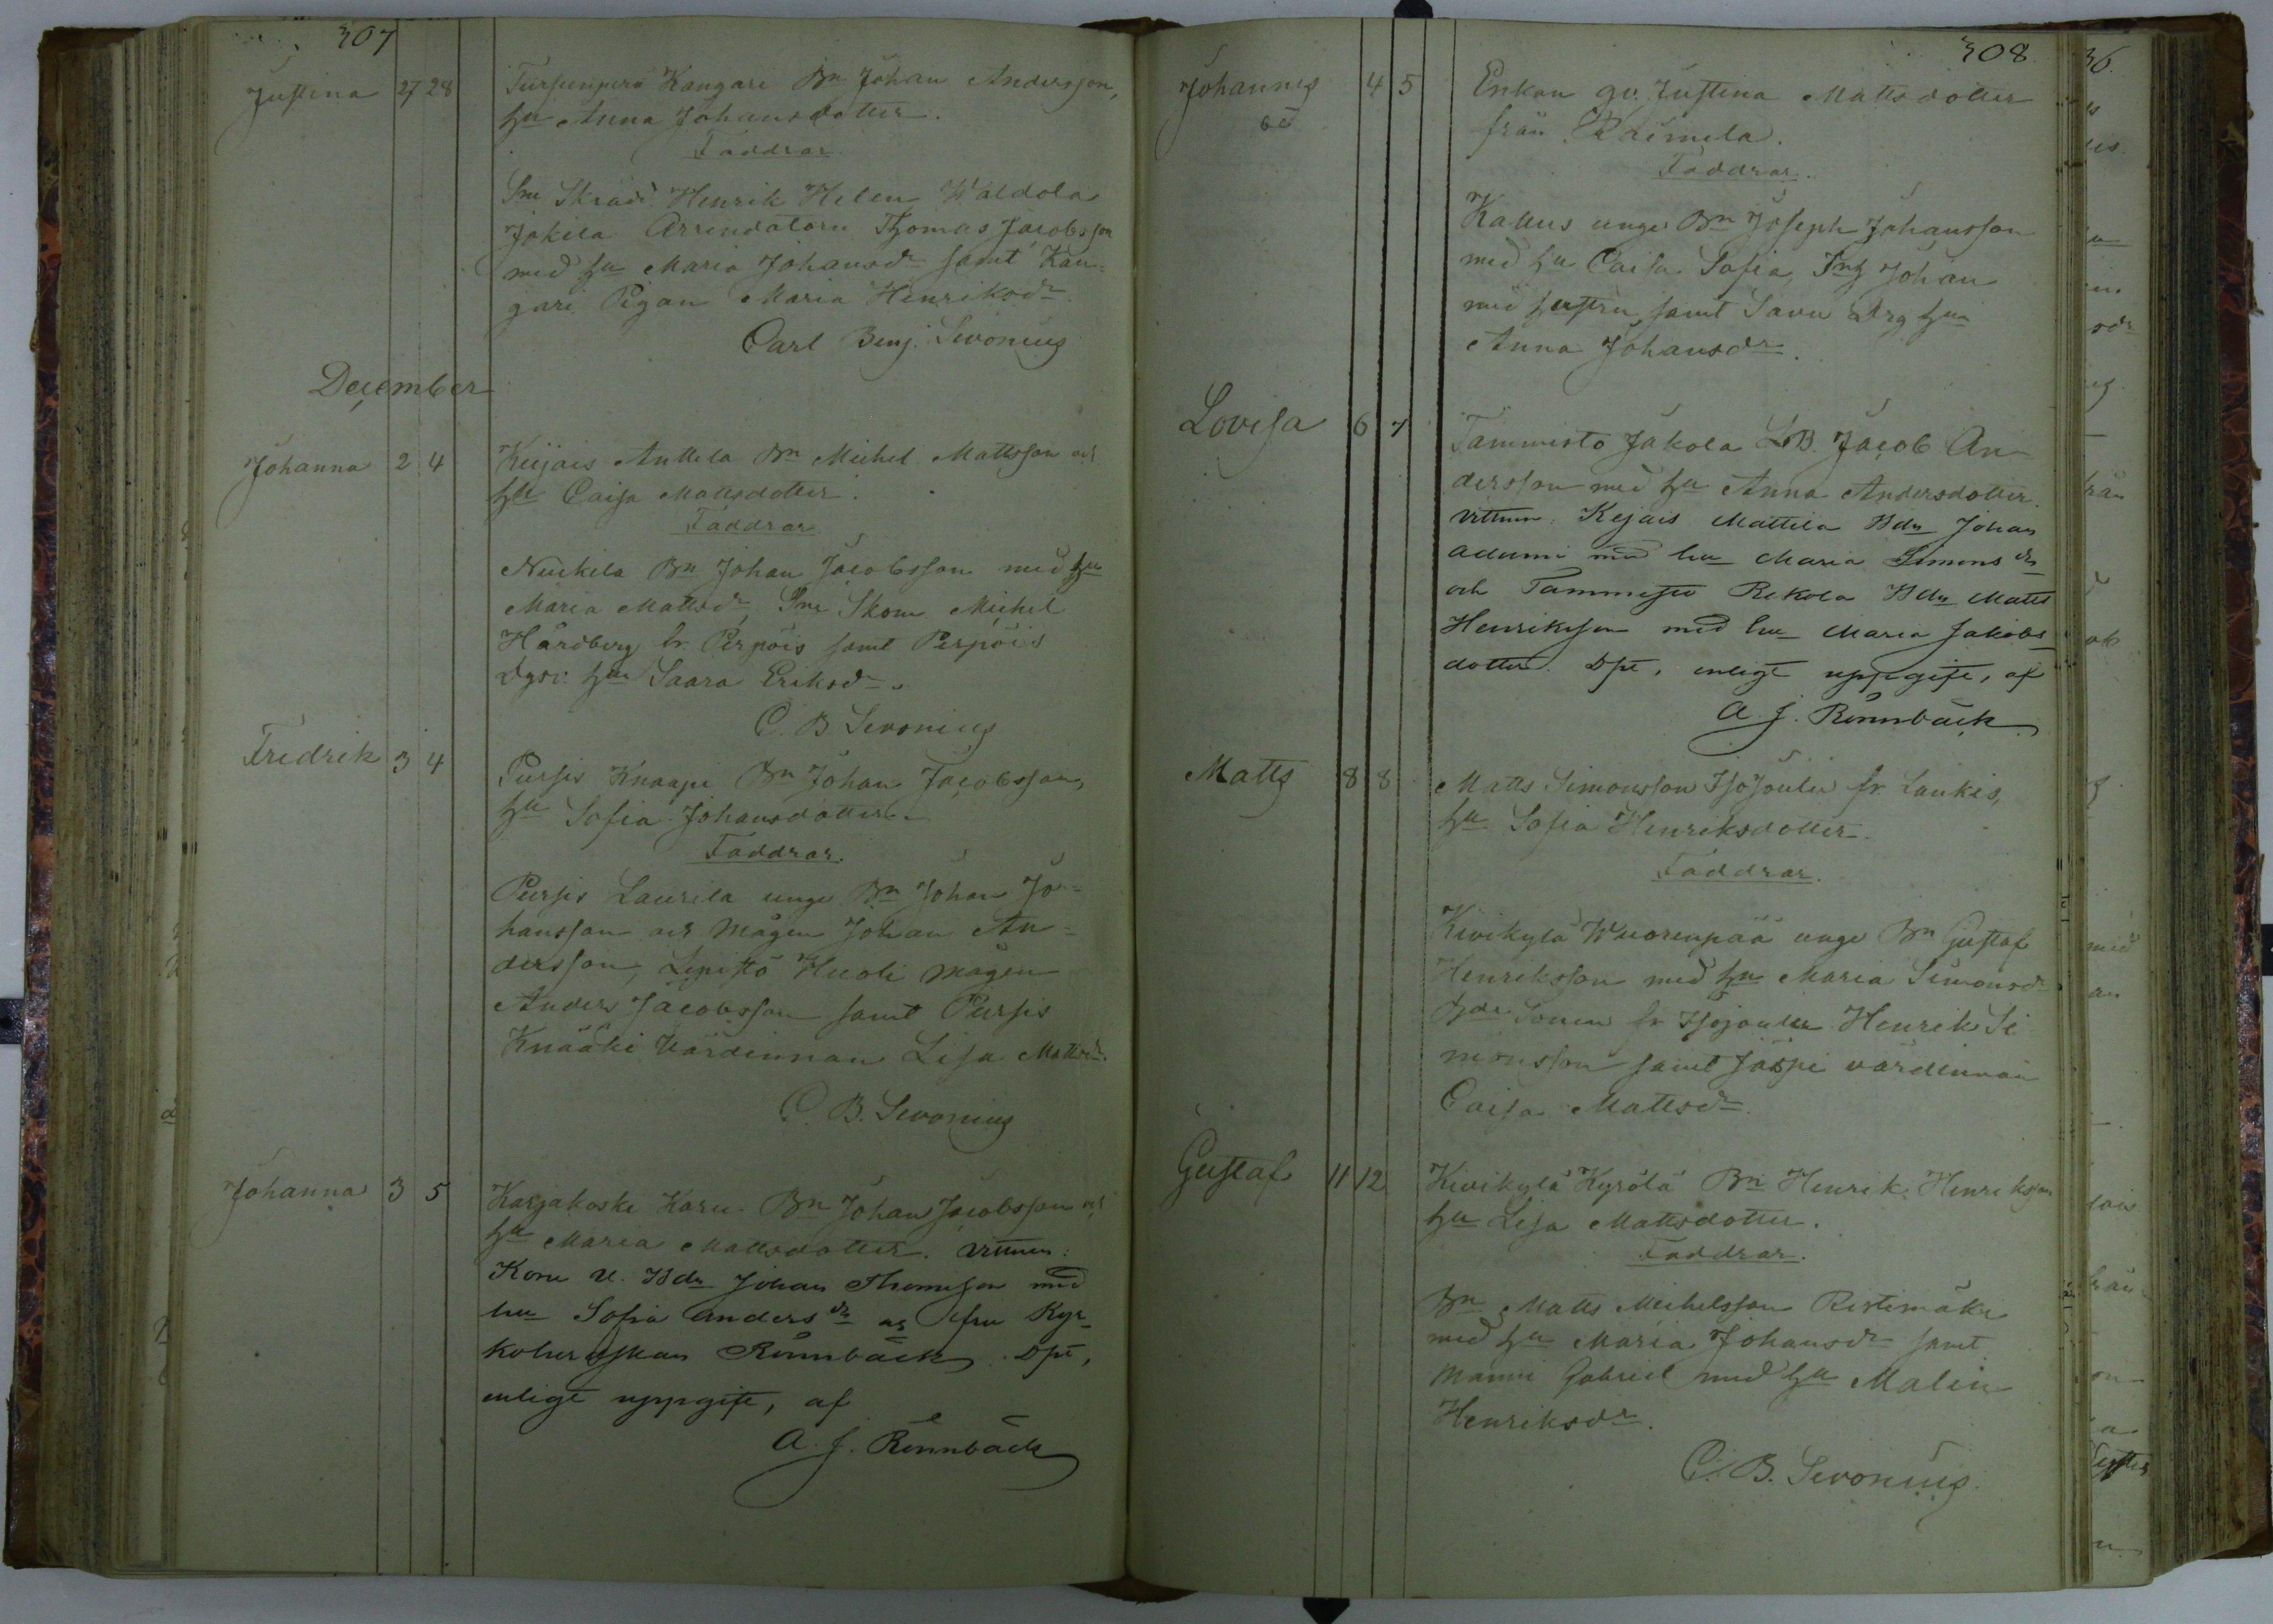 307
Justina 27 28 Tursunperä Kangari Bn Johan Andersson,
hu Anna Johansdotter.
Faddrar
Sn Skrädd. Henrik Helen Waldola
Jakila Arrendatorn Thomas Jacobsson
med hu Maria Johansdr samt Kan-
gari Pigan Maria Henriksdr
Carl Benj. Sivonius
December
Johanna 2 4 Keijais Anttila Bn Michel Mattsson och
hu Caisa Mattsdotter.
Faddrar
Nuckila Bn Johan Jacobsson med hu
Maria Mattsdr, Sn Skom. Michel
Hårdberg fr. Perpöis samt Perpöis
hu Saara Eriksdr.
C. B. Sivonius
Fredrik 3 4 Pursis Knaapi Bn Johan Jacobsson,
hu Sofia Johansdotter.
Faddrar.
Pursis Laurila unge Bn Johan Jo-
hansson och Mågen Johan An-
dersson, Lepistö Huoli mågen
Anders Jacobsson samt Pursis
Knääki Värdinnan Lisa Mattsdr.
C. B. Sivonius
Johanna 3 5 Karjakoski Karu Bn Johan Jacobsson och
hu Maria Mattsdotter. Vittnen:
U. Bdn Johan Thomsson med
hu Sofia Andersdr och fru Kyr-
koherdskan Rönnbäck. Dpt,
enligt uppgift, af
A. J. Rönnbäck
308
Johannes 4 5 Enkan gv. Justina Mattsdotter
oä från Raimela.
Faddrar.
Kallus unge Bn Joseph Johansson
med hu Caisa Sofia, Johan
med hustru samt Savu Drg hu
Anna Johansdr.
Lovisa 6 7 Tammisto Jakola LB. Jacob An-
dersson med hu Anna Andersdotter.
Vittnen: Kejais Mattila Bdn Johan
Adami med hu Maria Simonsdr
och Tammisto Rekola Bdn Matts
Henriksson med hu Maria Jakobs-
dotter. Dpt, enligt uppgift, af
A. J. Rönnbäck
Matts 8 8 Matts Simonsson Isojoulu fr. Laukis,
hu Sofia Henriksdotter.
Faddrar.
Kivikylä Wuorenpää unge Bn Gustaf
Henriksson med hu Maria Simonsdr
Sonen fr. Isojoulu Henrik Si-
monsson samt Jaspi värdinnan
Caisa Mattsdr.
Gustaf 11 12 Kivikylä Kyrölä Bn Henrik Henriksson
hu Lisa Mattsdotter.
Faddrar.
Bn Matts Michelsson Ristimäki
med hu Maria Johansdr samt
Manni Gabriel med hu Malin
Henriksdr.
C. B. Sivonius